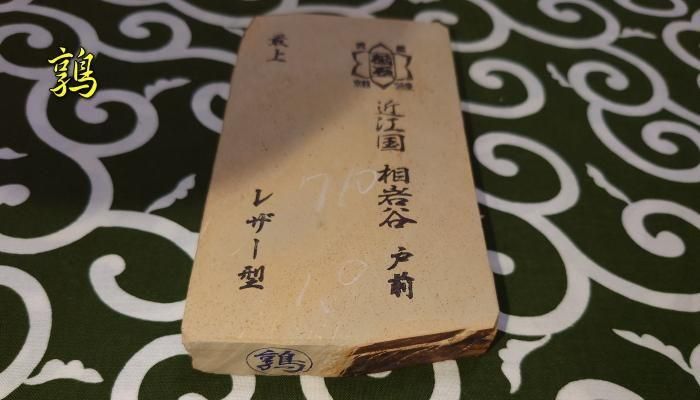 鶉
近江国 相岩谷 戸前
最上
レザー型
710
鶉